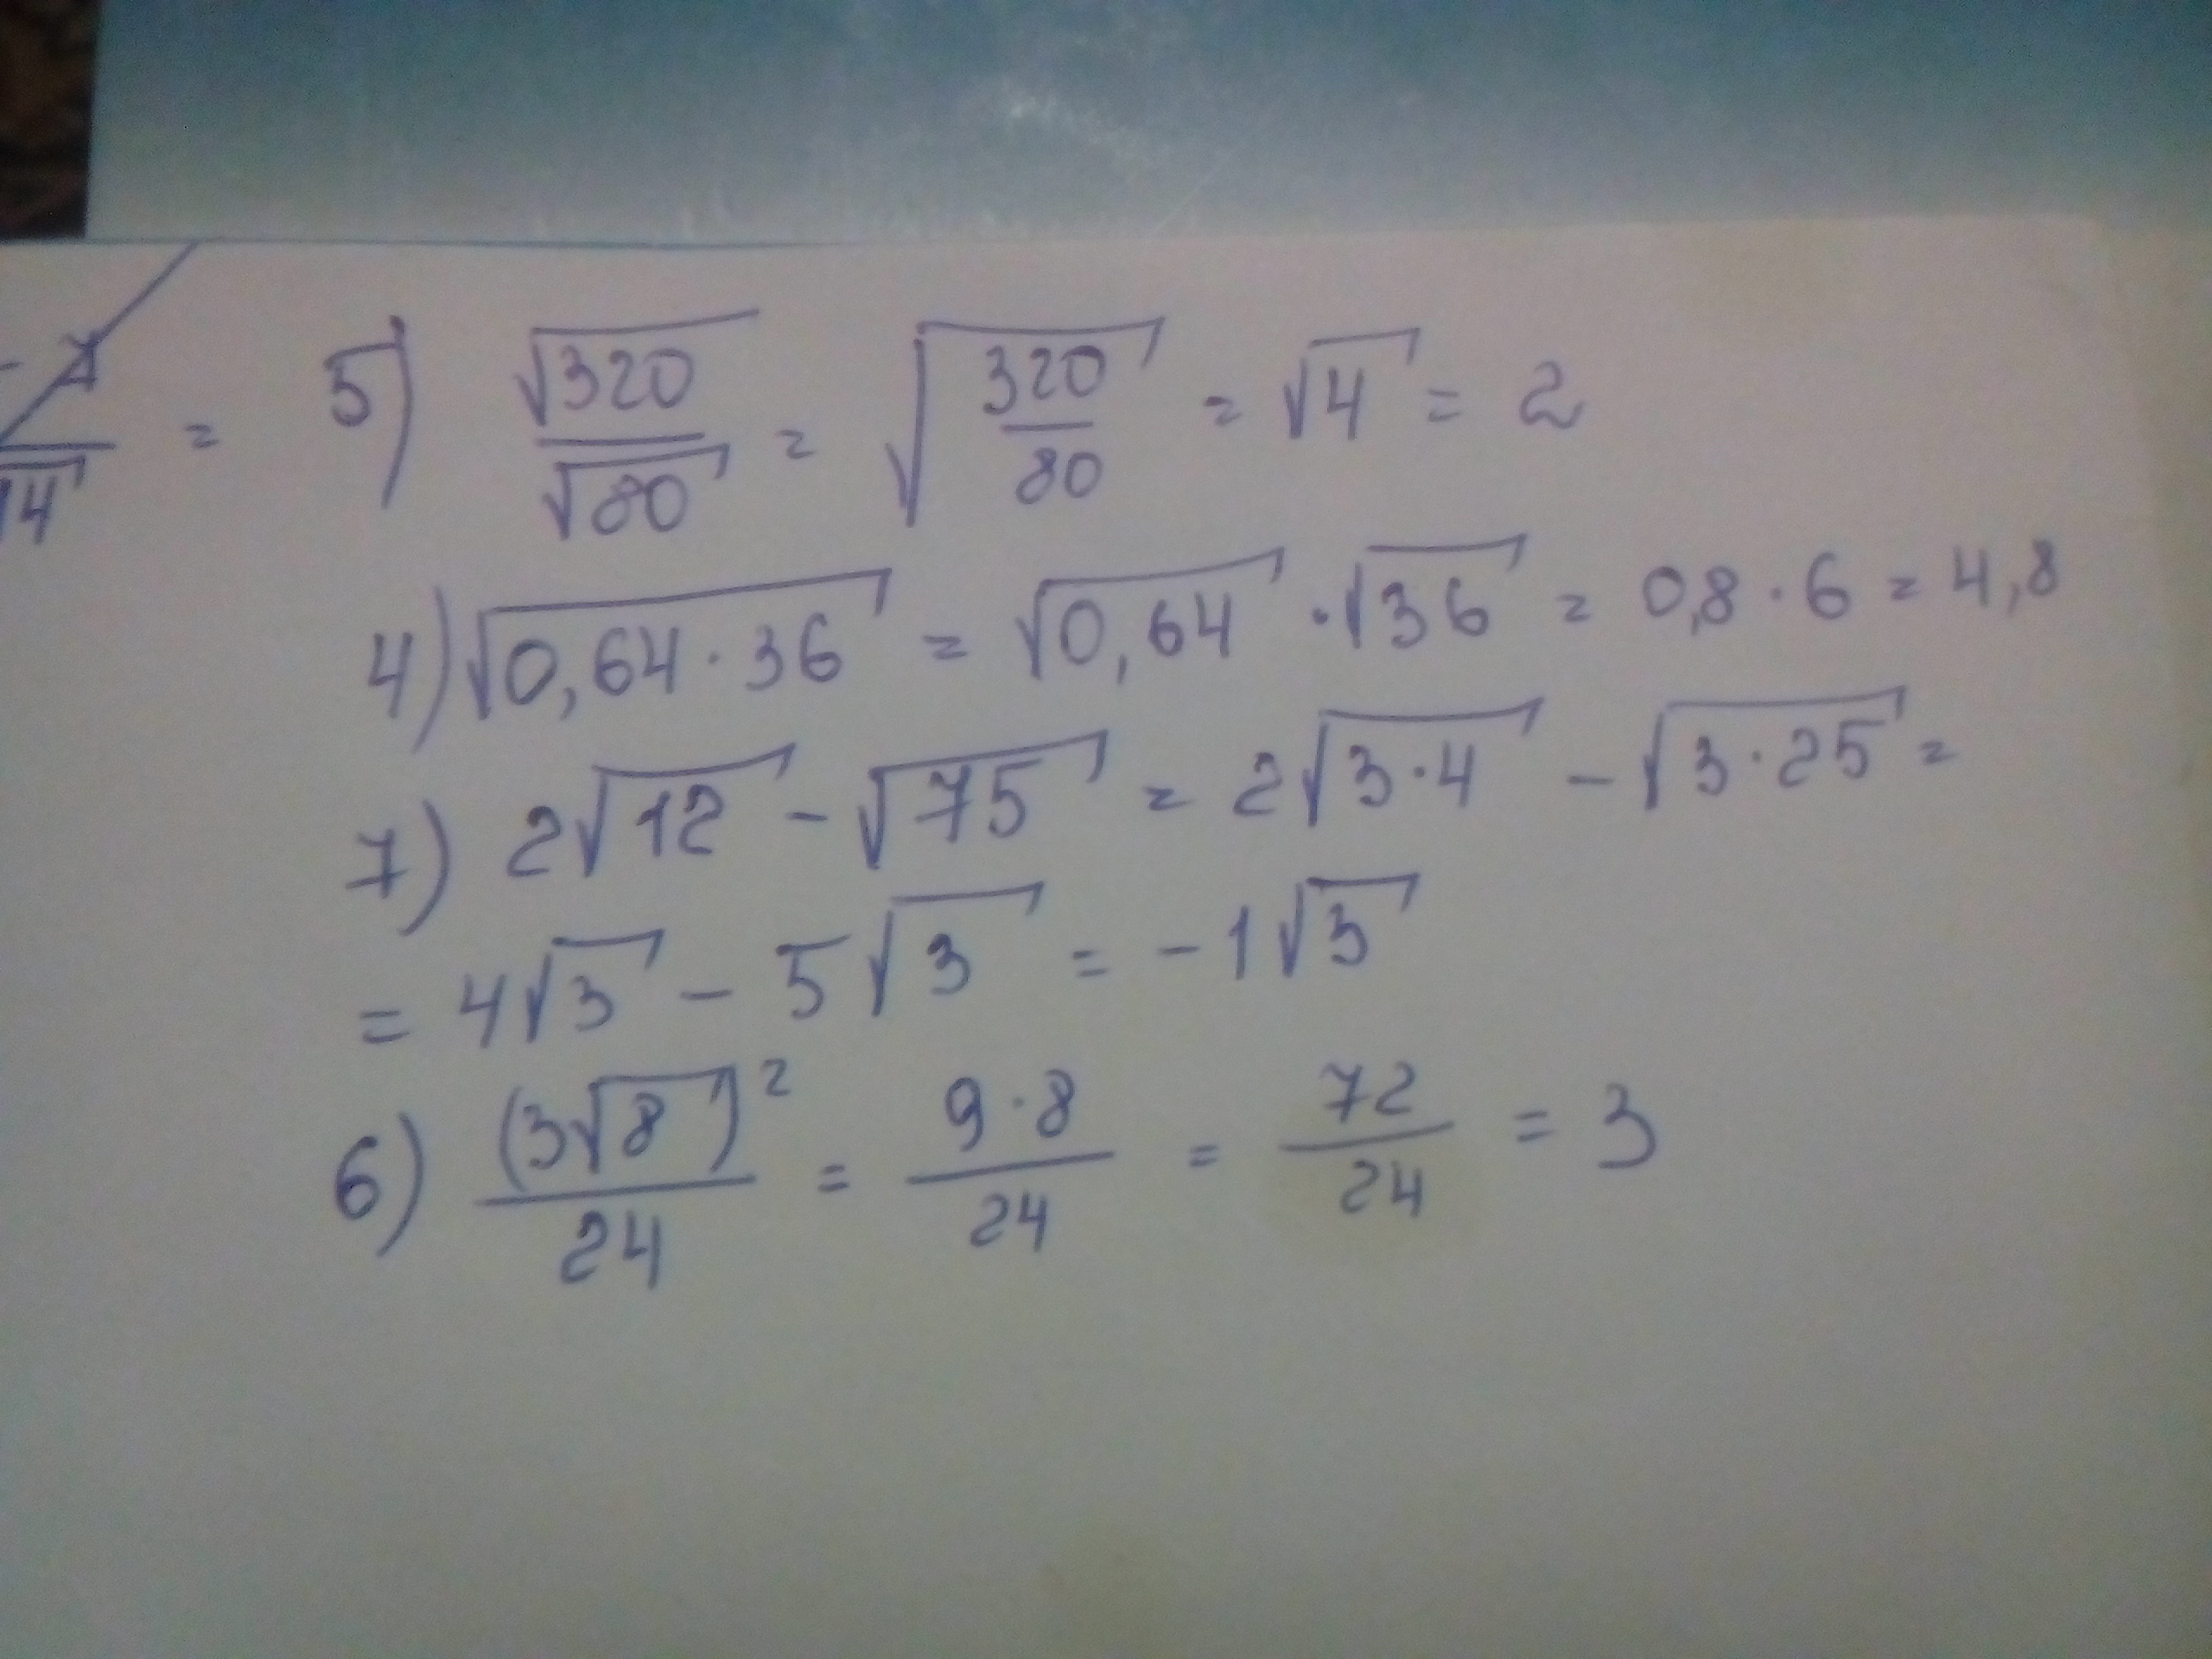 5) √320/√80 = √(320/80) = √4 = 2
4) √(0,64·36) = √0,64 · √36 = 0,8·6 = 4,8
7) 2√12 - √75 = 2√(3·4) - √(3·25) =
= 4√3 - 5√3 = -1√3
6) (3√8)²/24 = 9·8/24 = 72/24 = 3